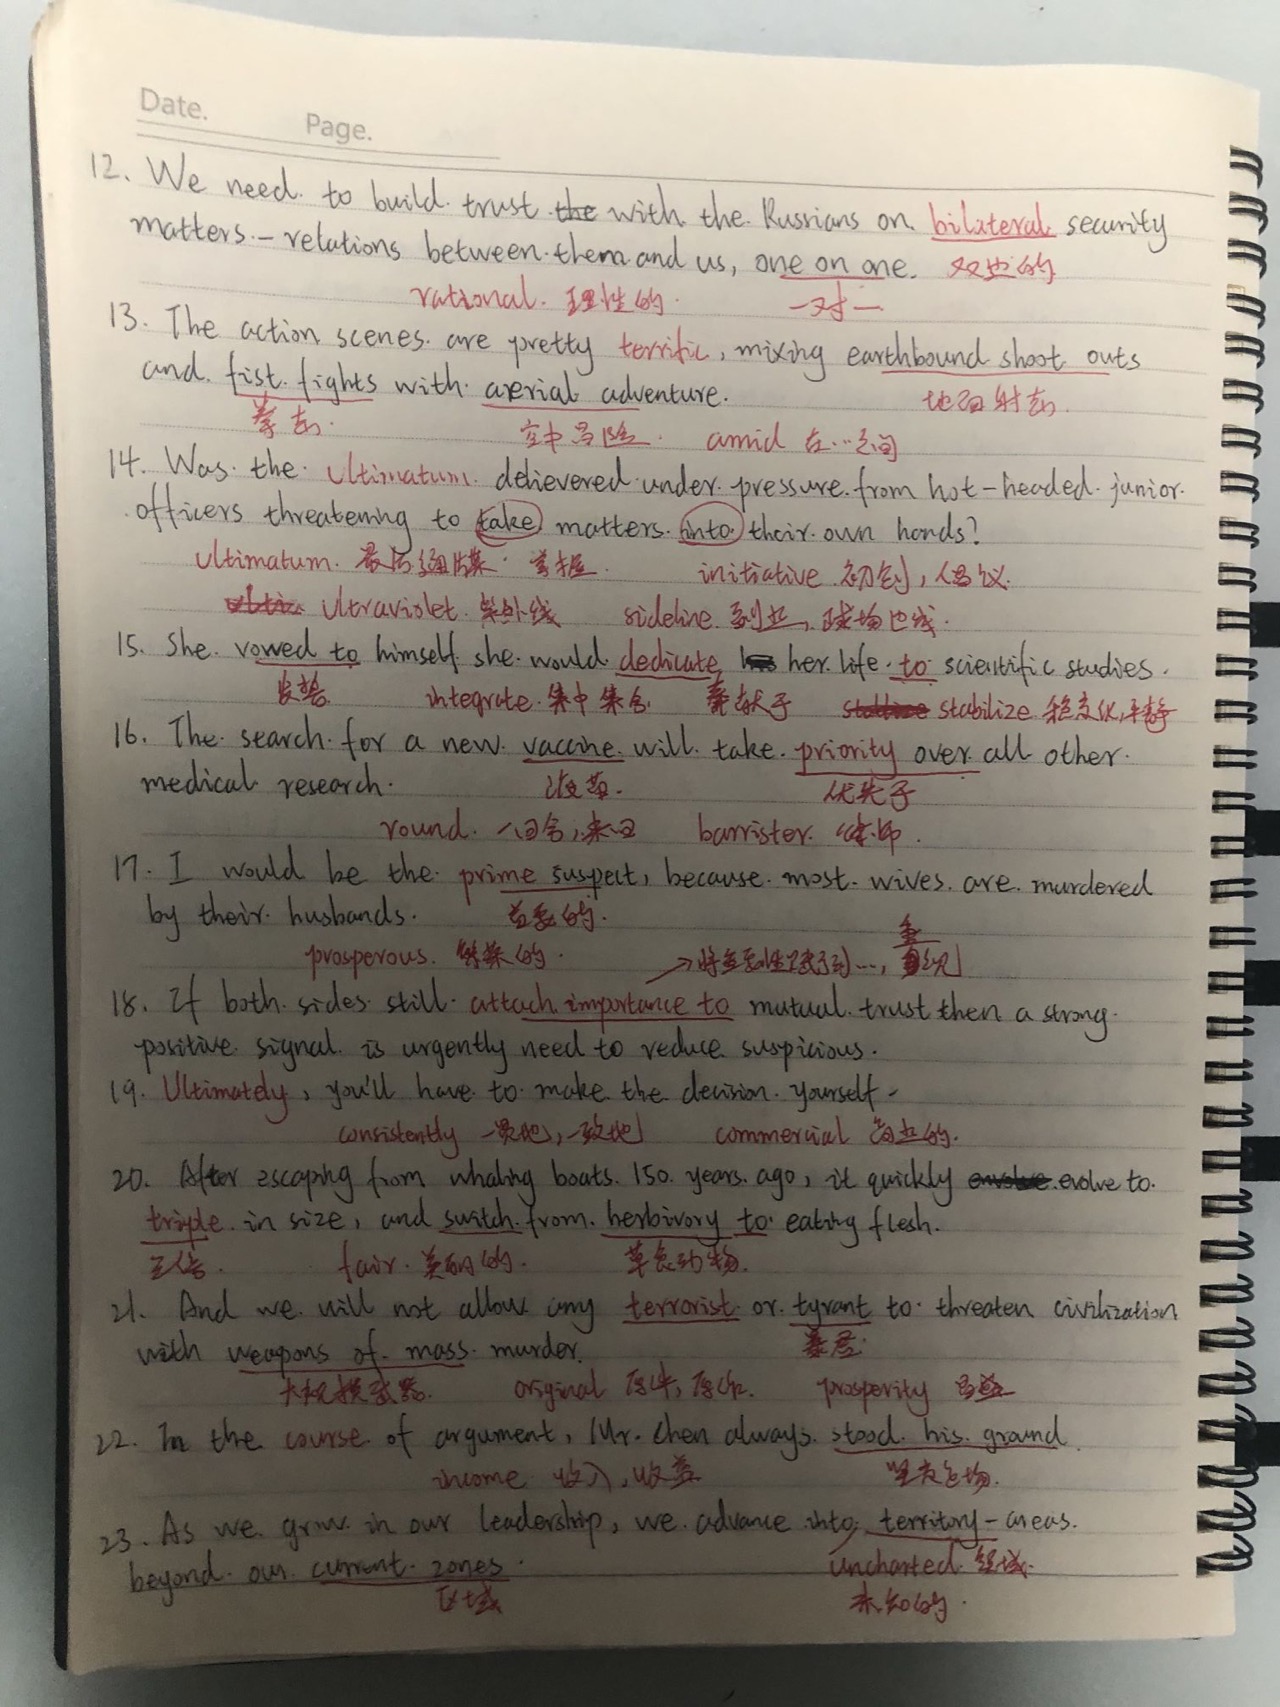 Date.
Page.
12. We need to build trust the with the Russians on bilateral security
matters - relations between them and us, one on one. 双边的
rational 理性的 一对一
13. The action scenes are pretty terrific, mixing earthbound shoot outs
and fist fights with aerial adventure. 地面射击
拳击 空中冒险 amid 在…之间
14. Was the ultimatum delievered under pressure from hot-headed junior
officers threatening to take matters into their own hands?
ultimatum 最后通牒 掌握 initiative 初创, 倡议
ultraviolet 紫外线 sideline 副业, 球场边线
15. She vowed to himself she would dedicate her life to scientific studies.
发誓 integrate 集中 集合 奉献于 stabilize 稳定化, 平静
16. The search for a new vaccine will take priority over all other
medical research. 疫苗 优先于
round 一回合, 来回 barrister 律师
17. I would be the prime suspect, because most wives are murdered
by their husbands. 首要的
prosperous 繁荣的 →将重要性赋予到…, 重视
18. If both sides still attach importance to mutual trust then a strong
positive signal is urgently need to reduce suspicious.
19. Ultimately, you'll have to make the decision yourself.
consistently 一贯地, 一致地 commercial 商业的
20. After escaping from whaling boats 150 years ago, it quickly evolve to
triple in size, and switch from herbivory to eating flesh.
三倍 fair 美丽的 草食动物
21. And we will not allow any terrorist or tyrant to threaten civilization
with weapons of mass murder. 暴君
大规模武器 original 原件, 原作 prosperity
22. In the course of argument, Mr. Chen always stood his ground
income 收入, 收益 坚定立场
23. As we grow in our leadership, we advance into territory - areas
beyond our current zones. uncharted 领域
区域 未知的